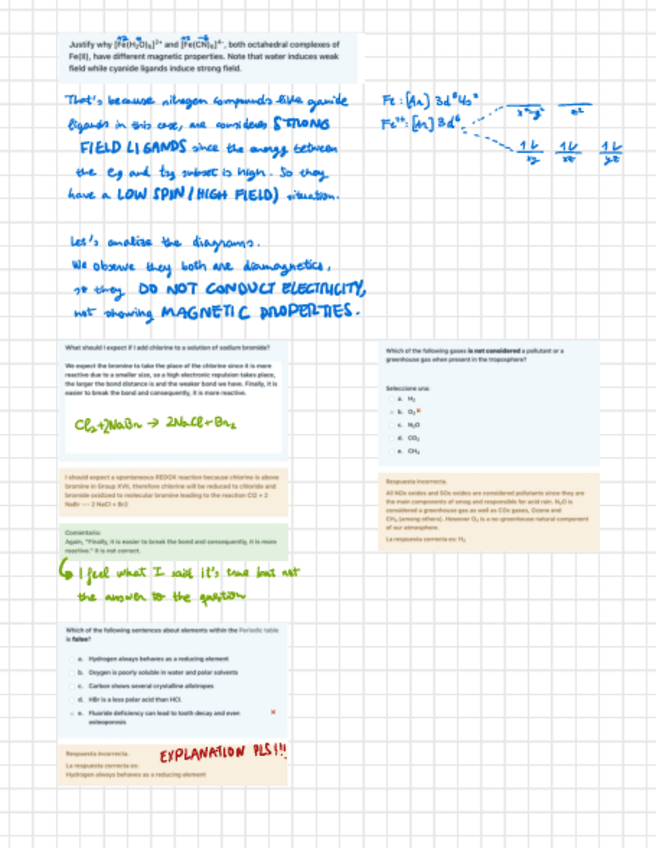 Justify why [Fe(H₂O)₆]²⁺ and [Fe(CN)₆]⁴⁻, both octahedral complexes of
Fe(II), have different magnetic properties. Note that water induces weak
field while cyanide ligands induce strong field.
That's because nitrogen compounds like cyanide
ligands in this case, are considered STRONG
FIELD LIGANDS since the energy between
the eg and t2g subset is high. So they
have a LOW SPIN (HIGH FIELD) situation.
Fe: [Ar] 3d⁶4s²
Fe²⁺: [Ar] 3d⁶
x²-y² z²
1L 1L 1L
xy xz yz
Let's analize the diagrams.
We observe they both are diamagnetics,
so they DO NOT CONDUCT ELECTRICITY,
not showing MAGNETIC PROPERTIES.
What should I expect if I add chlorine to a solution of sodium bromide?
We expect the bromine to take the place of the chlorine since it is more
reactive due to a smaller size, so a high electronic repulsion takes place,
the larger the bond distance is and the weaker bond we have. Finally, it is
easier to break the bond and consequently, it is more reactive.
Cl₂+2NaBr → 2NaCl+Br₂
I should expect a spontaneous REDOX reaction because chlorine is above
bromine in Group XVII, therefore chlorine will be reduced to chloride and
bromide oxidized to molecular bromine leading to the reaction Cl2 + 2
NaBr --- 2 NaCl + Br2
Comentario:
Again, "Finally, it is easier to break the bond and consequently, it is more
reactive." It is not correct.
I feel what I said it's true but not
the answer to the question
Which of the following gases is not considered a pollutant or a
greenhouse gas when present in the troposphere?
Seleccione una:
a. H₂
b. O₃
c. N₂O
d. CO₂
e. CH₄
Respuesta incorrecta.
All NOx oxides and SOx oxides are considered pollutants since they are
the main components of smog and responsible for acid rain. N₂O is
considered a greenhouse gas as well as COx gases, Ozone and
CH₄ (among others). However O₂ is a no-greenhouse natural component
of our atmosphere.
La respuesta correcta es: H₂
Which of the following sentences about elements within the Periodic table
is false?
a. Hydrogen always behaves as a reducing element
b. Oxygen is poorly soluble in water and polar solvents
c. Carbon shows several crystalline allotropes
d. HBr is a less polar acid than HCl.
e. Fluoride deficiency can lead to tooth decay and even
osteoporosis
Respuesta incorrecta.
EXPLANATION PLS!!!
La respuesta correcta es:
Hydrogen always behaves as a reducing element